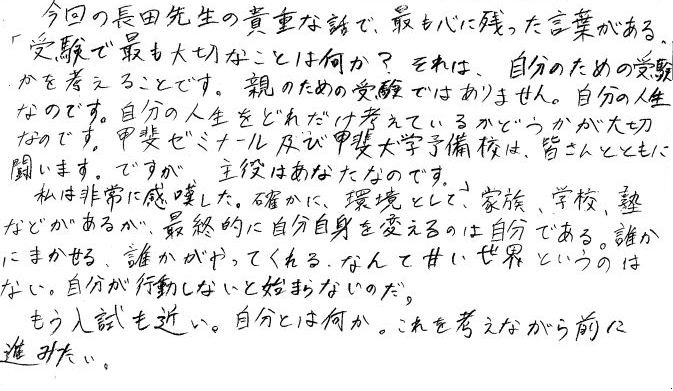 今回の長田先生の貴重な話で、最も心に残った言葉がある。
「受験で最も大切なことは何か？それは、自分のための受験
かを考えることです。親のための受験ではありません。自分の人生
なのです。自分の人生をどれだけ考えているかどうかが大切
なのです。甲斐ゼミナール及び甲斐大学予備校は、皆さんとともに
闘います。ですが、主役はあなたなのです。」
私は非常に感嘆した。確かに、環境として、家族、学校、塾
などがあるが、最終的に自分自身を変えるのは自分である。誰か
にまかせる、誰かがやってくれる、なんて甘い世界というのは
ない。自分が行動しないと始まらないのだ。
もう入試も近い。自分とは何か。これを考えながら前に
進みたい。